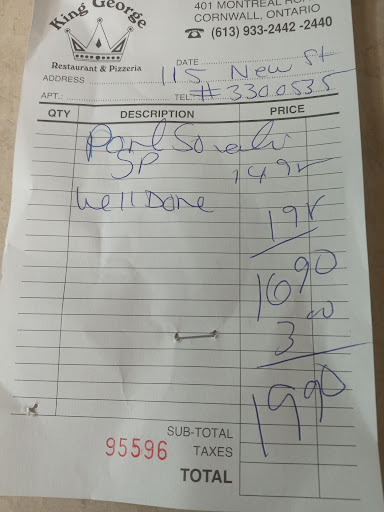 King George
Restaurant & Pizzeria
401 MONTREAL
CORNWALL, ONTARIO
☎ (613) 933-2442 -2440
DATE
ADDRESS 115 New St
APT.: TEL.: # 3300535
QTY DESCRIPTION PRICE
SP 1495
Well Done
195
1690
3.00
1990
SUB-TOTAL
95596 TAXES
TOTAL